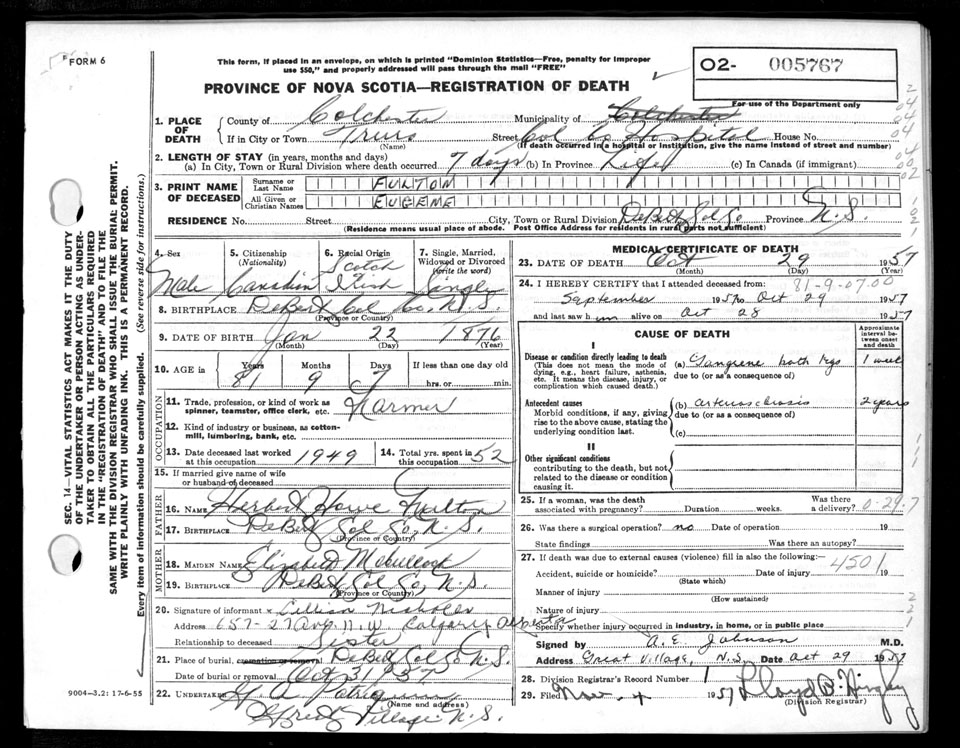 FORM 6
This form, if placed in an envelope, on which is printed "Dominion Statistics—Free, penalty for improper
use $50," and properly addressed will pass through the mail "FREE"
02- 005767
For use of the Department only
PROVINCE OF NOVA SCOTIA—REGISTRATION OF DEATH
1. PLACE OF DEATH
County of Colchester Municipality of Colchester
If in City or Town Truro Street Col Co Hospital House No.
(Name) (If death occurred in a hospital or institution, give the name instead of street and number)
2. LENGTH OF STAY (in years, months and days)
(a) In City, Town or Rural Division where death occurred 7 days (b) In Province Life (c) In Canada (if immigrant)
3. PRINT NAME OF DECEASED
Surname or Last Name FULTON
All Given or Christian Names EUGENE
RESIDENCE No. Street City, Town or Rural Division DeBert Col Co Province N.S.
(Residence means usual place of abode. Post Office Address for residents in rural parts not sufficient)
4. Sex Male
5. Citizenship (Nationality) Canadian
6. Racial Origin Scotch Irish
7. Single, Married, Widowed or Divorced (write the word) Single
8. BIRTHPLACE DeBert Col Co. N.S.
(Province or Country)
9. DATE OF BIRTH Jan 22 1876
(Month) (Day) (Year)
10. AGE in Years Months Days If less than one day old
81 9 7 hrs. or min.
OCCUPATION
11. Trade, profession, or kind of work as spinner, teamster, office clerk, etc. Farmer
12. Kind of industry or business, as cotton-mill, lumbering, bank, etc.
13. Date deceased last worked at this occupation 1949
14. Total yrs. spent in this occupation 52
15. If married give name of wife or husband of deceased
FATHER
16. NAME Herbert Howe Fulton
17. BIRTHPLACE DeBert Col Co, N.S.
(Province or Country)
MOTHER
18. MAIDEN NAME Elizabeth McCulloch
19. BIRTHPLACE DeBert Col Co, N.S.
(Province or Country)
20. Signature of informant x Lillian
Address 657-27 Ave N.W. Calgary Alberta
Relationship to deceased Sister
21. Place of burial, cremation or removal DeBert Col Co N.S.
Date of burial or removal Oct 31 1957
22. UNDERTAKER G. A.
(Name and address)
Village N.S.
9004-3.2: 17-6-55
MEDICAL CERTIFICATE OF DEATH
23. DATE OF DEATH Oct 29 1957
(Month) (Day) (Year)
24. I HEREBY CERTIFY that I attended deceased from: 81-9-07.00
September 1957 to Oct 29 1957
and last saw him alive on Oct 28 1957
CAUSE OF DEATH
Approximate interval between onset and death
I
Disease or condition directly leading to death
(This does not mean the mode of dying, e.g., heart failure, asthenia, etc. It means the disease, injury, or complication which caused death.)
(a) Gangrene both legs 1 week
due to (or as a consequence of)
Antecedent causes
Morbid conditions, if any, giving rise to the above cause, stating the underlying condition last.
(b) arteriosclerosis 2 years
due to (or as a consequence of)
(c)
II
Other significant conditions
contributing to the death, but not related to the disease or condition causing it.
25. If a woman, was the death associated with pregnancy? Duration weeks. Was there a delivery? 0-29.7
26. Was there a surgical operation? no Date of operation 19
State findings Was there an autopsy?
27. If death was due to external causes (violence) fill in also the following: 4501
Accident, suicide or homicide? Date of injury 19
(State which)
Manner of injury
(How sustained)
Nature of injury
Specify whether injury occurred in industry, in home, or in public place
Signed by A. E. Johnson M.D.
Address Great Village, N.S. Date Oct 29 1957
28. Division Registrar's Record Number 1
29. Filed Nov. 4 1957 Lloyd B.
(Division Registrar)
SEC. 14—VITAL STATISTICS ACT MAKES IT THE DUTY
OF THE UNDERTAKER OR PERSON ACTING AS UNDER-
TAKER TO OBTAIN ALL THE PARTICULARS REQUIRED
IN THE "REGISTRATION OF DEATH" AND TO FILE THE
SAME WITH THE DIVISION REGISTRAR WHO SHALL ISSUE THE BURIAL PERMIT.
WRITE PLAINLY WITH UNFADING INK. THIS IS A PERMANENT RECORD.
Every item of information should be carefully supplied. (See reverse side for instructions.)